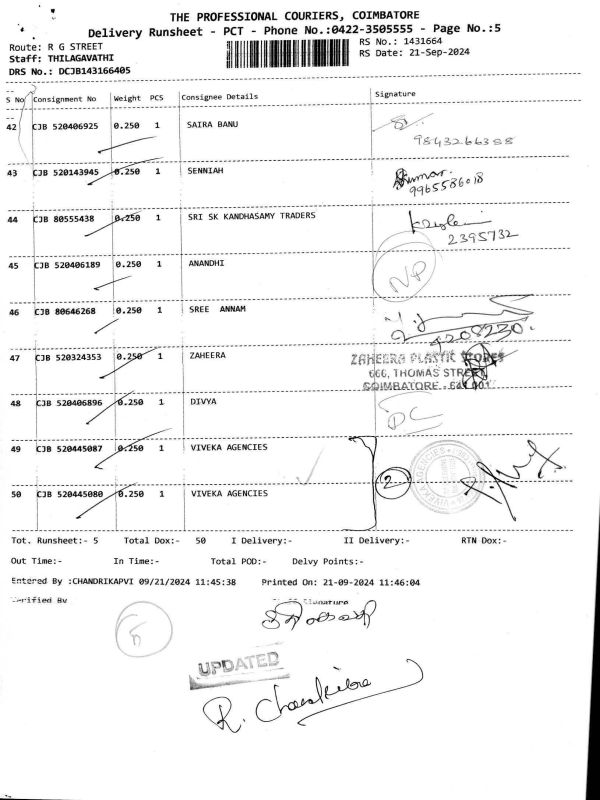 THE PROFESSIONAL COURIERS, COIMBATORE
Delivery Runsheet - PCT - Phone No.:0422-3505555 - Page No.:5
Route: R G STREET
RS No.: 1431664
Staff: THILAGAVATHI
RS Date: 21-Sep-2024
DRS No.: DCJB143166405
S No Consignment No Weight PCS Consignee Details Signature
42 CJB 520406925 0.250 1 SAIRA BANU
9843266388
43 CJB 520143945 0.250 1 SENNIAH Kumar.
9965586018
44 CJB 80555438 0.250 1 SRI SK KANDHASAMY TRADERS
2395732
45 CJB 520406189 0.250 1 ANANDHI NP
46 CJB 80646268 0.250 1 SREE ANNAM
4208230.
47 CJB 520324353 0.250 1 ZAHEERA
ZAHEERA PLASTIC STORES
666, THOMAS STREET
COIMBATORE - 641 001
48 CJB 520406896 0.250 1 DIVYA DC
49 CJB 520445087 0.250 1 VIVEKA AGENCIES
2
VIVEKA AGENCIES
50 CJB 520445080 0.250 1 VIVEKA AGENCIES
Tot. Runsheet:- 5 Total Dox:- 50 I Delivery:- II Delivery:- RTN Dox:-
Out Time:- In Time:- Total POD:- Delvy Points:-
Entered By :CHANDRIKAPVI 09/21/2024 11:45:38 Printed On: 21-09-2024 11:46:04
Verified By Signature
UPDATED
R. Chandrika